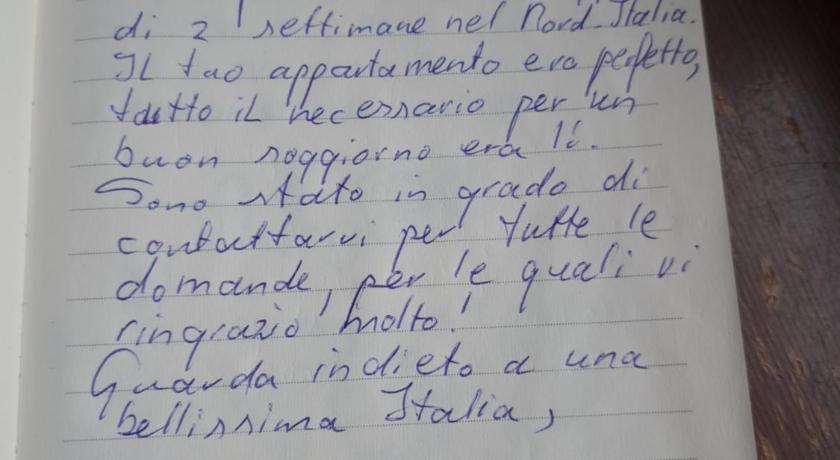 di 2 settimane nel Nord-Italia.
Il tuo appartamento era perfetto,
tutto il necessario per un
buon soggiorno era lí.
Sono stato in grado di
contattarvi per tutte le
domande, per le quali vi
ringrazio molto!
Guarda indieto a una
bellissima Italia,